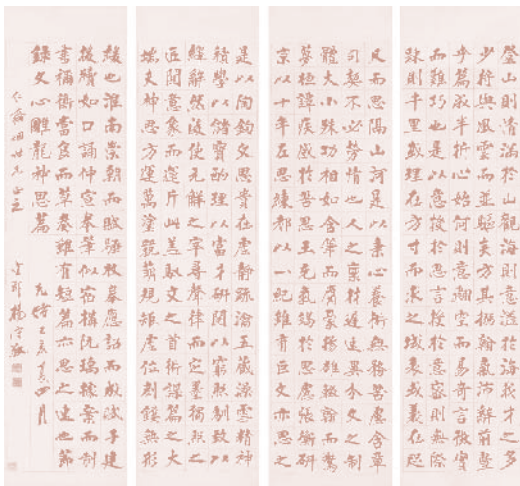 登山則情滿於山觀海則意溢於海才之多
少將與風雲而並驅矣方其搦翰氣倍辭前暨
乎篇成半折心始何則意翻空而易奇言徵實
而難巧也是以意授於思言授於意密則無際
疎則千里或理在方寸而求之域表或義在咫
尺而思隔山河是以秉心養術無務苦慮含章
司契不必勞情也人之稟材遲速異分文之制
體大小殊功相如含筆而腐毫揚雄輟翰而驚
夢桓譚疾感於苦思王充氣竭於慮張衡研
京以十年左思練都以一紀雖有巨文亦思之
是以陶鈞文思貴在虛靜疏瀹五藏澡雪精神
積學以儲寶酌理以富才研閱以窮照馴致
繹辭然後使元解之宰尋聲律而定墨獨照之
匠闚意象而運斤此蓋馭文之首術謀篇之大
端夫神思方運萬塗競萌規矩虛位刻鏤無形
緩也淮南崇朝而賦騷枚皋應詔而成賦子建
援牘如口誦仲宣舉筆似宿構阮瑀據案而制
書禰衡當食而草奏雖有短篇亦思之速也節
錄文心雕龍神思篇
光緒四月
仁姻世兄正
宜都楊守敬